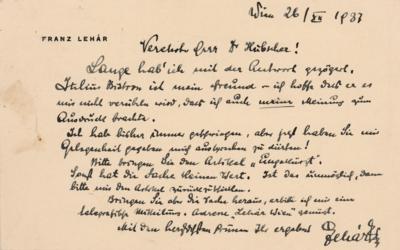 Wien 26/XII 1937
FRANZ LEHÁR
Verehrter Herr Dr Hübscher!
Lange hab' ich mit der Antwort gezögert.
Julius Bistron ist mein Freund – ich hoffe dass er es
mir nicht verübeln wird, dass ich auch meine Meinung zum
Ausdruck brachte.
Ich hab bisher immer geschwiegen, aber jetzt haben Sie mir
Gelegenheit gegeben mich aussprechen zu dürfen!
Bitte bringen Sie den Artikel „Ungekürzt".
Sonst hat die Sache keinen Wert. Ist das unmöglich, dann
bitte mir den Artikel zurückzustellen.
Bringen Sie aber die Sache heraus, erbitte ich mir eine
telegrafische Mitteilung. Adresse Lehár Wien genügt.
Mit den herzlichsten Grüssen Ihr ergebener
Lehár